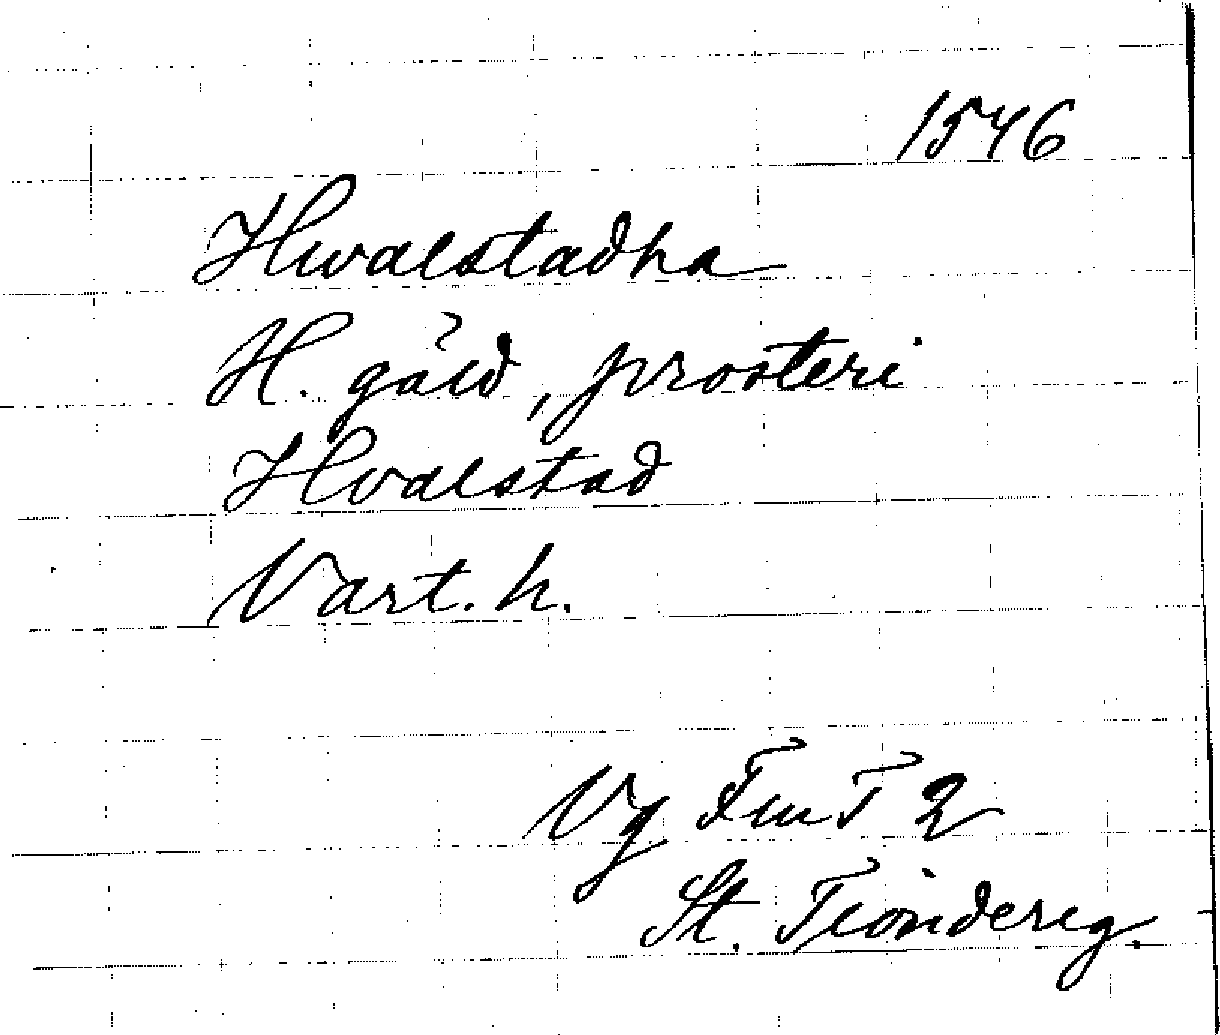 1546
Hwalstadha
H. gäld, prosteri
Hvalstad
Vart. h.
Vg FmT 2
St. Tiondereg.